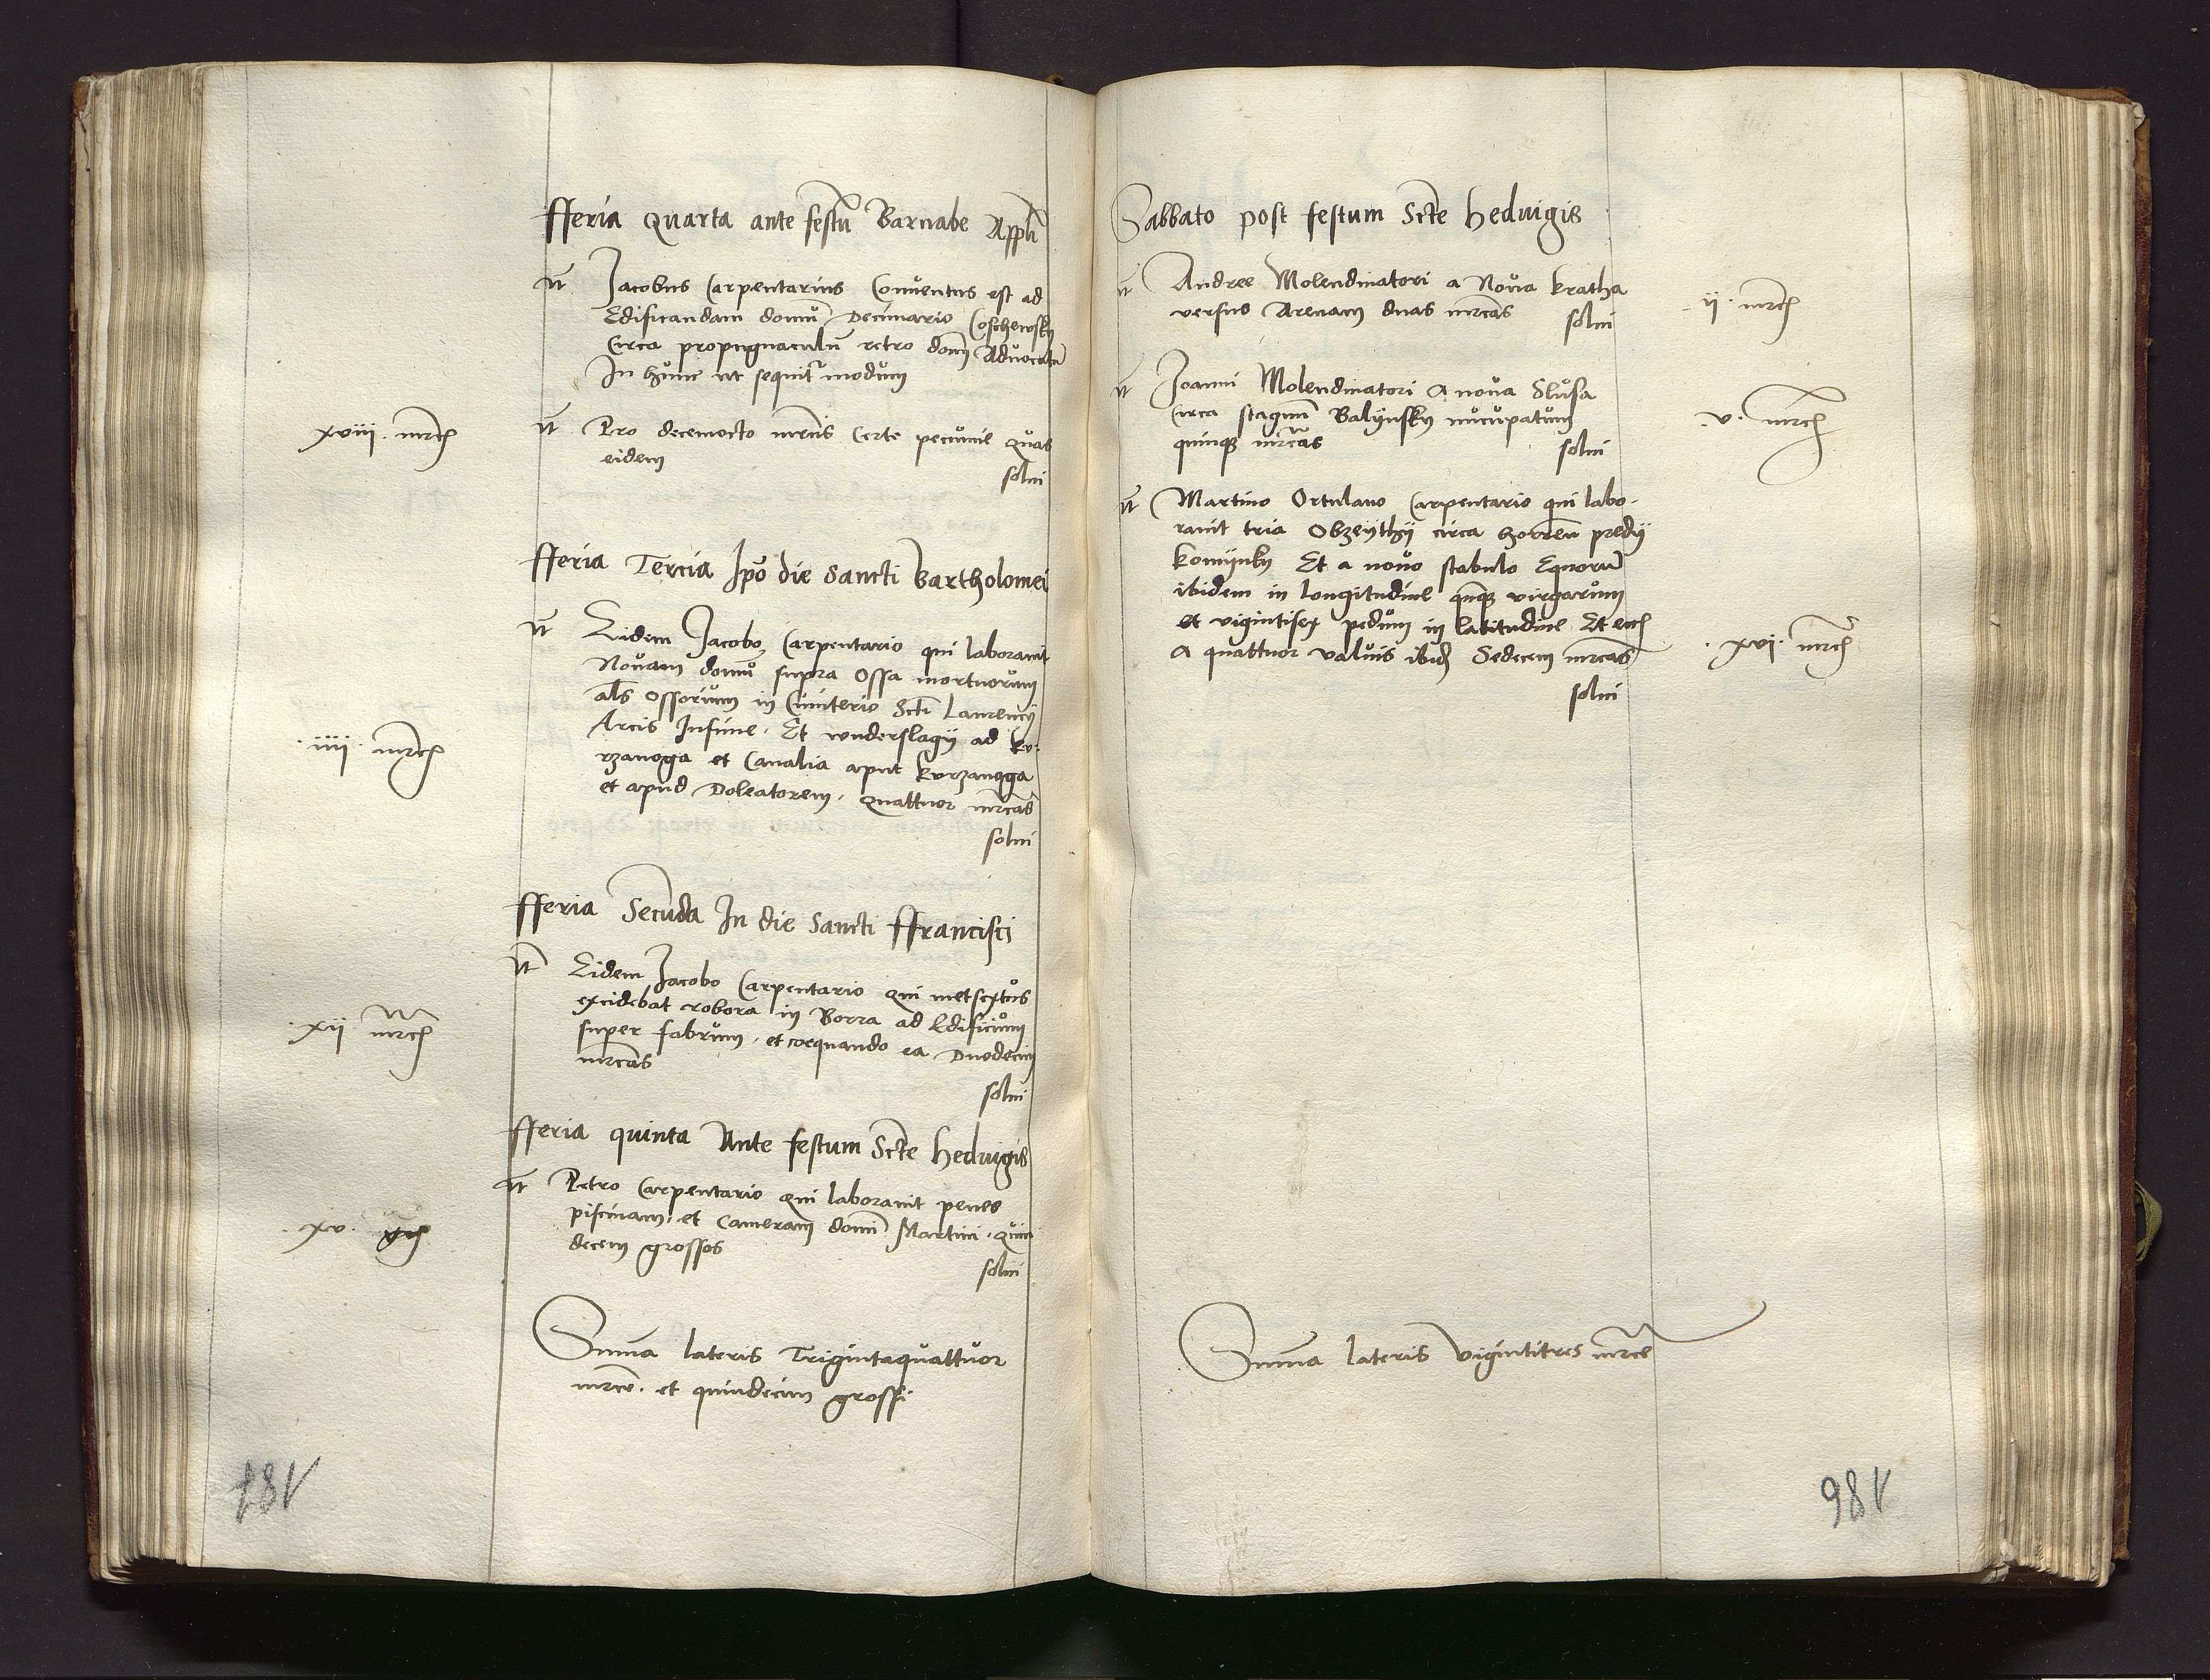 fferia Quarta ante festū Barnabe Appłi
It Jacobus Carpentarius Conventus est ad
Edificandam domū Decimario Coschewsky
Circa propugnaculū retro domū Advocatū
In hunc ut sequit modum
xviii mrc It Pro decemocto mrcis Certe pecunie quas
eidem
solvi
fferia Tercia Ipō die Sancti Bartholomei
It Eidem Jacobo Carpentario qui laboravit
Novam domū supra Ossa mortuorum
als Ossorium in Cimiterio Scti Laurencij
Arcis Infime Et wnderslagij ad kv-
rzanoga et Canalia aput kvrzanoga
iiii mrc
et apud Doleatorem quattuor mrcas
solvi
fferia Secūda In die Sancti ffrancisci
It Eidem Jacobo Carpentario qui metsextus
excidebat robora in Borra ad Edificium
xii mrc
super fabrum et coequando ea Duodecim
mrcas
solvi
fferia quinta Ante festum Scte Hedvigis
It Petro Carpentario qui laboravit penes
piscinam et Cameram domī Martini quin
xv
decem grossos
solvi
Summa lateris Trigintaquattuor
mrce et quindecim grossi
187
Sabbato post festum Scte Hedvigis
It Andree Molendinatori a Nova kratha
versus Arenam duas mrcas solvi
ii mrc
It Joanni Molendinatori a nova Slusa
Circa stagnū Balynsky nūcupatum
quinque mrcas solvi
v mrc
It Martino Ortulano Carpentario qui labo-
ravit tria Obzeythij circa horreū predij
komijnky Et a novo stabulo Equorū
ibidem in longitudine quinque virgarum
et vigintisex pedum in latitudine Et
a quattuor valvis ibid Sedecem mrcas
xvi mrc
solvi
Summa lateris Vigintitres mrce
186